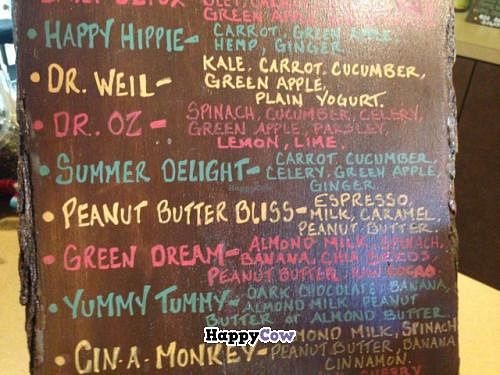 GREEN APPLE
• HAPPY HIPPIE - CARROT, GREEN APPLE,
HEMP, GINGER
• DR. WEIL - KALE. CARROT. CUCUMBER,
GREEN APPLE,
PLAIN YOGURT.
• DR. OZ - SPINACH, CUCUMBER, CELERY,
GREEN APPLE, PARSLEY,
LEMON, LIME.
• SUMMER DELIGHT - CARROT. CUCUMBER,
CELERY. GREEN APPLE,
GINGER
• PEANUT BUTTER BLISS - ESPRESSO,
MILK, CARAMEL,
PEANUT BUTTER.
• GREEN DREAM - ALMOND MILK, SPINACH,
BANANA, CHIA SEEDS,
PEANUT BUTTER, RAW COCAO
• YUMMY TUMMY - DARK CHOCOLATE, BANANA,
ALMOND MILK, PEANUT
BUTTER OR ALMOND BUTTER
• GIN-A-MONKEY - ALMOND MILK, SPINACH
PEANUT BUTTER, BANANA
CINNAMON.
CHERRY
HappyCow